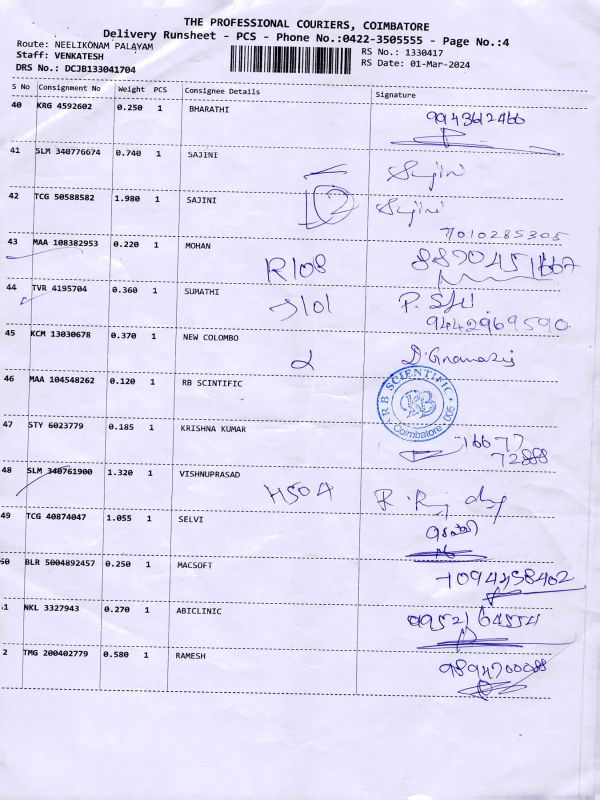 THE PROFESSIONAL COURIERS, COIMBATORE
Delivery Runsheet - PCS - Phone No.:0422-3505555 - Page No.:4
Route: NEELIKONAM PALAYAM
Staff: VENKATESH
DRS No.: DCJB133041704
RS No.: 1330417
RS Date: 01-Mar-2024
S No Consignment No Weight PCS Consignee Details Signature
40 KRG 4592602 0.250 1 BHARATHI
41 SLM 340776674 0.740 1 SAJINI Sajini
42 TCG 50588582 1.980 1 SAJINI Sajini
7010285305
43 MAA 108382953 0.220 1 MOHAN R108 8870451667
44 TVR 4195704 0.360 1 SUMATHI J101
9442969590
45 KCM 13030678 0.370 1 NEW COLOMBO
46 MAA 104548262 0.120 1 RB SCINTIFIC
RB SCIENTIFIC
RB
Coimbatore 005
47 STY 6023779 0.185 1 KRISHNA KUMAR
72888
48 SLM 340761900 1.320 1 VISHNUPRASAD H504
49 TCG 40874047 1.055 1 SELVI
50 BLR 5004892457 0.250 1 MACSOFT
7094458402
51 NKL 3327943 0.270 1 ABICLINIC
2 TMG 200402779 0.580 1 RAMESH
9894700088